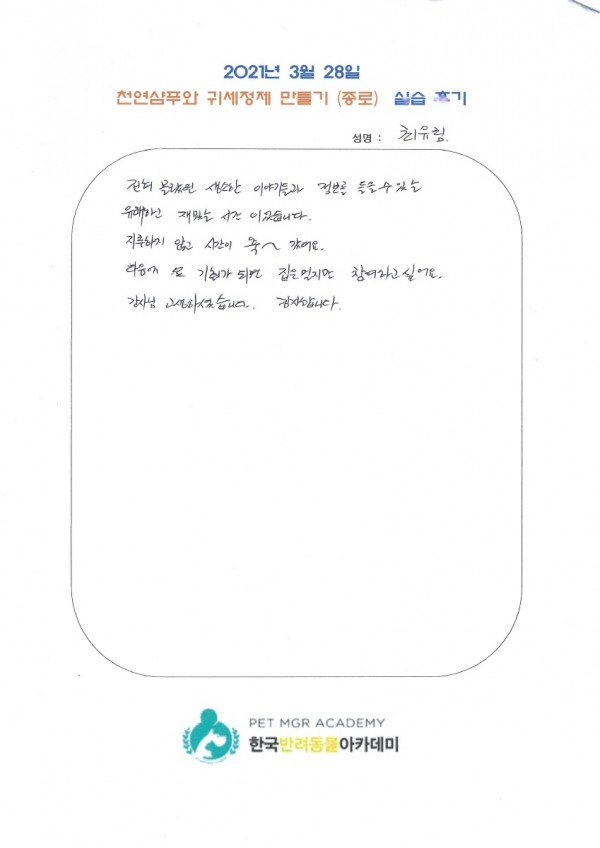 2021년 3월 28일
천연샴푸와 귀세정제 만들기 (종로) 실습 후기
성명 : 최유림
전혀 몰랐던 생소한 이야기들과 정보를 들을 수 있는
유쾌하고 재밌는 시간 이었습니다.
지루하지 않고 시간이 훅~ 갔어요.
다음에 또 기회가 되면 집은 멀지만 참여하고 싶어요.
강사님 고생하셨습니다. 감사합니다.
PET MGR ACADEMY
한국반려동물아카데미